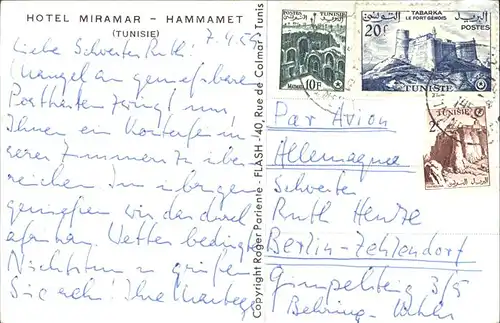 HOTEL MIRAMAR - HAMMAMET
(TUNISIE)
7.4.56
Liebe Schwester Ruth!
Mangel an geniessbaren
Postkarten zwingt uns
Ihnen ein Konterfei un-
serer Zimmer zu über-
reichen. Im übrigen
geniessen wir das durch
afrikan. Wetter bedingte
Nichtstun u. grüßen
Sie sehr! Ihre
Copyright Roger Pariente - FLASH - 40, Rue de Colmar - Tunis
TUNISIE
POSTES
10F
TABARKA
LE FORT GENOIS
20F
POSTES
TUNISIE
TUNISIE
Par Avion
Allemagne
Schwester
Ruth
Berlin-Zehlendorf
Gimpelsteig 3/5
Behring-